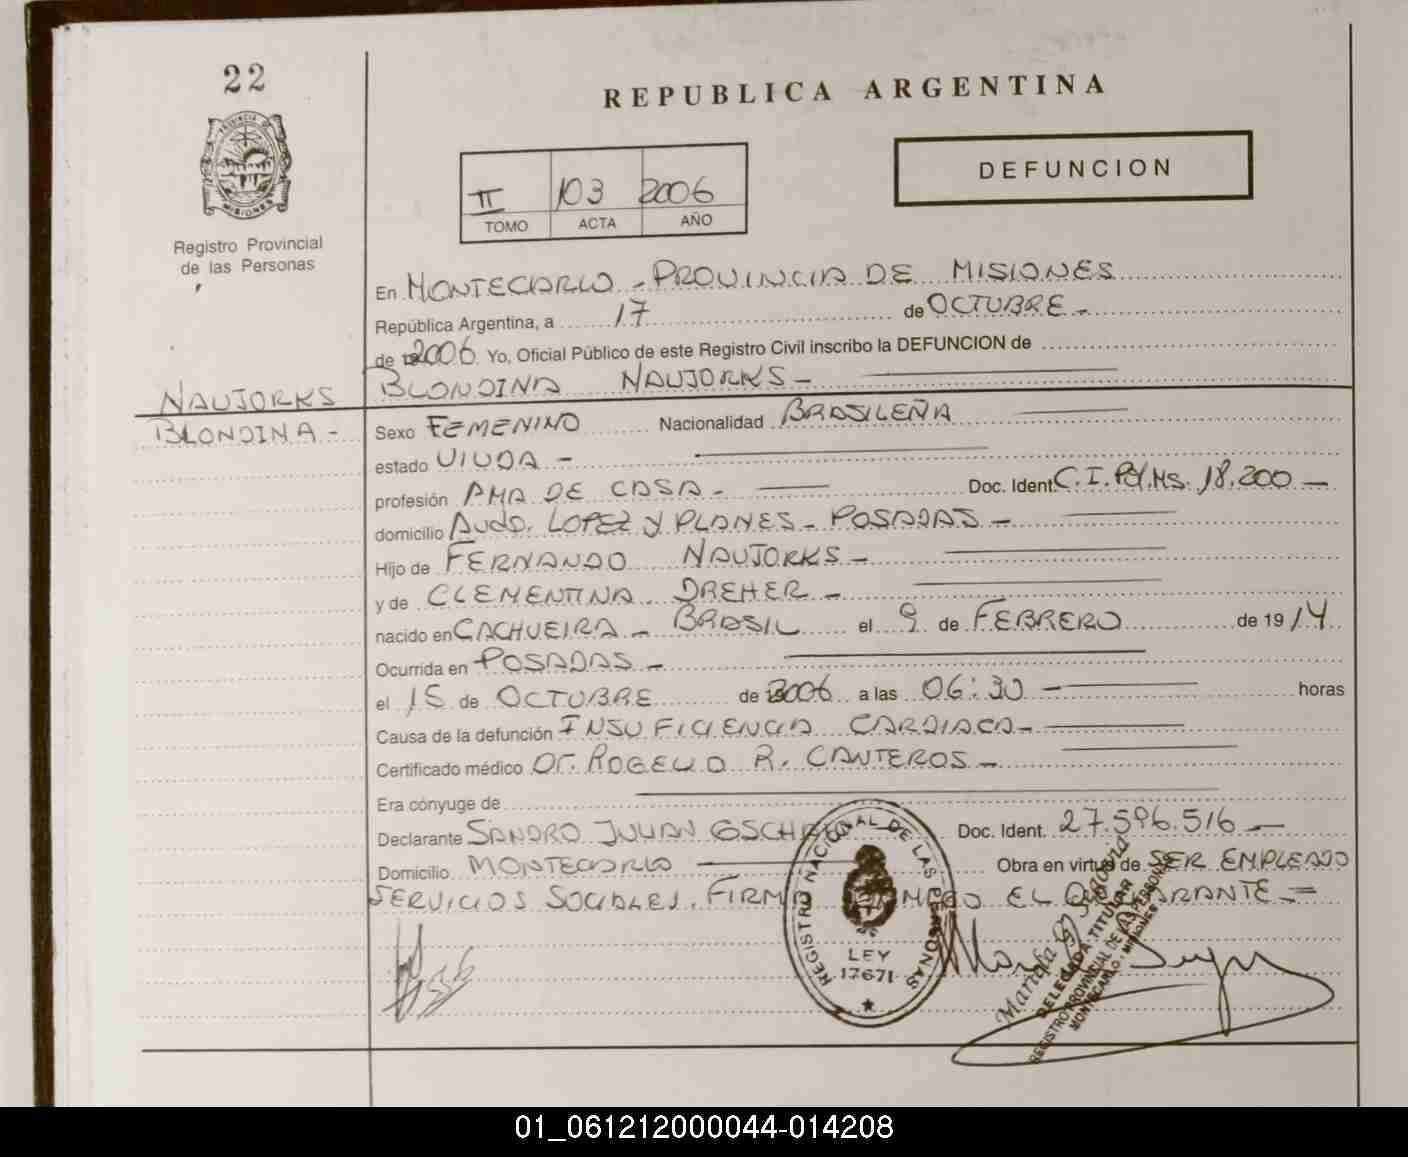 22
REPUBLICA ARGENTINA
PROVINCIA DE
MISIONES
Registro Provincial
de las Personas
II 103 2006
TOMO ACTA AÑO
DEFUNCION
En MONTECARLO - PROVINCIA DE MISIONES
República Argentina, a 17 de OCTUBRE -
de 2006 Yo, Oficial Público de este Registro Civil inscribo la DEFUNCION de
NAUJORKS
BLONDINA -
BLONDINA NAUJORKS -
Sexo FEMENINO Nacionalidad BRASILEÑA
estado VIUDA -
profesión AMA DE CASA - Doc. Ident. C.I.Pol.Ms. 18.200 -
domicilio Avda. LOPEZ Y PLANES - POSADAS -
Hijo de FERNANDO NAUJORKS -
y de CLEMENTINA DREHER -
nacido en CACHUEIRA - BRASIL el 9 de FEBRERO de 1914
Ocurrida en POSADAS -
el 15 de OCTUBRE de 2006 a las 06:30 - horas
Causa de la defunción INSUFICIENCIA CARDIACA -
Certificado médico Dr. ROGELIO R. CANTEROS -
Era cónyuge de
Declarante SANDRO JULIAN Doc. Ident. 27.596.516 -
Domicilio MONTECARLO Obra en virtud de SER EMPLEADO
SERVICIOS SOCIALES. FIRMA EL DECLARANTE =
REGISTRO NACIONAL DE LAS PERSONAS
LEY
17671
DELEGADA TITULAR
REGISTRO PROVINCIAL DE LAS PERSONAS
MONTECARLO - MISIONES
01_061212000044-014208